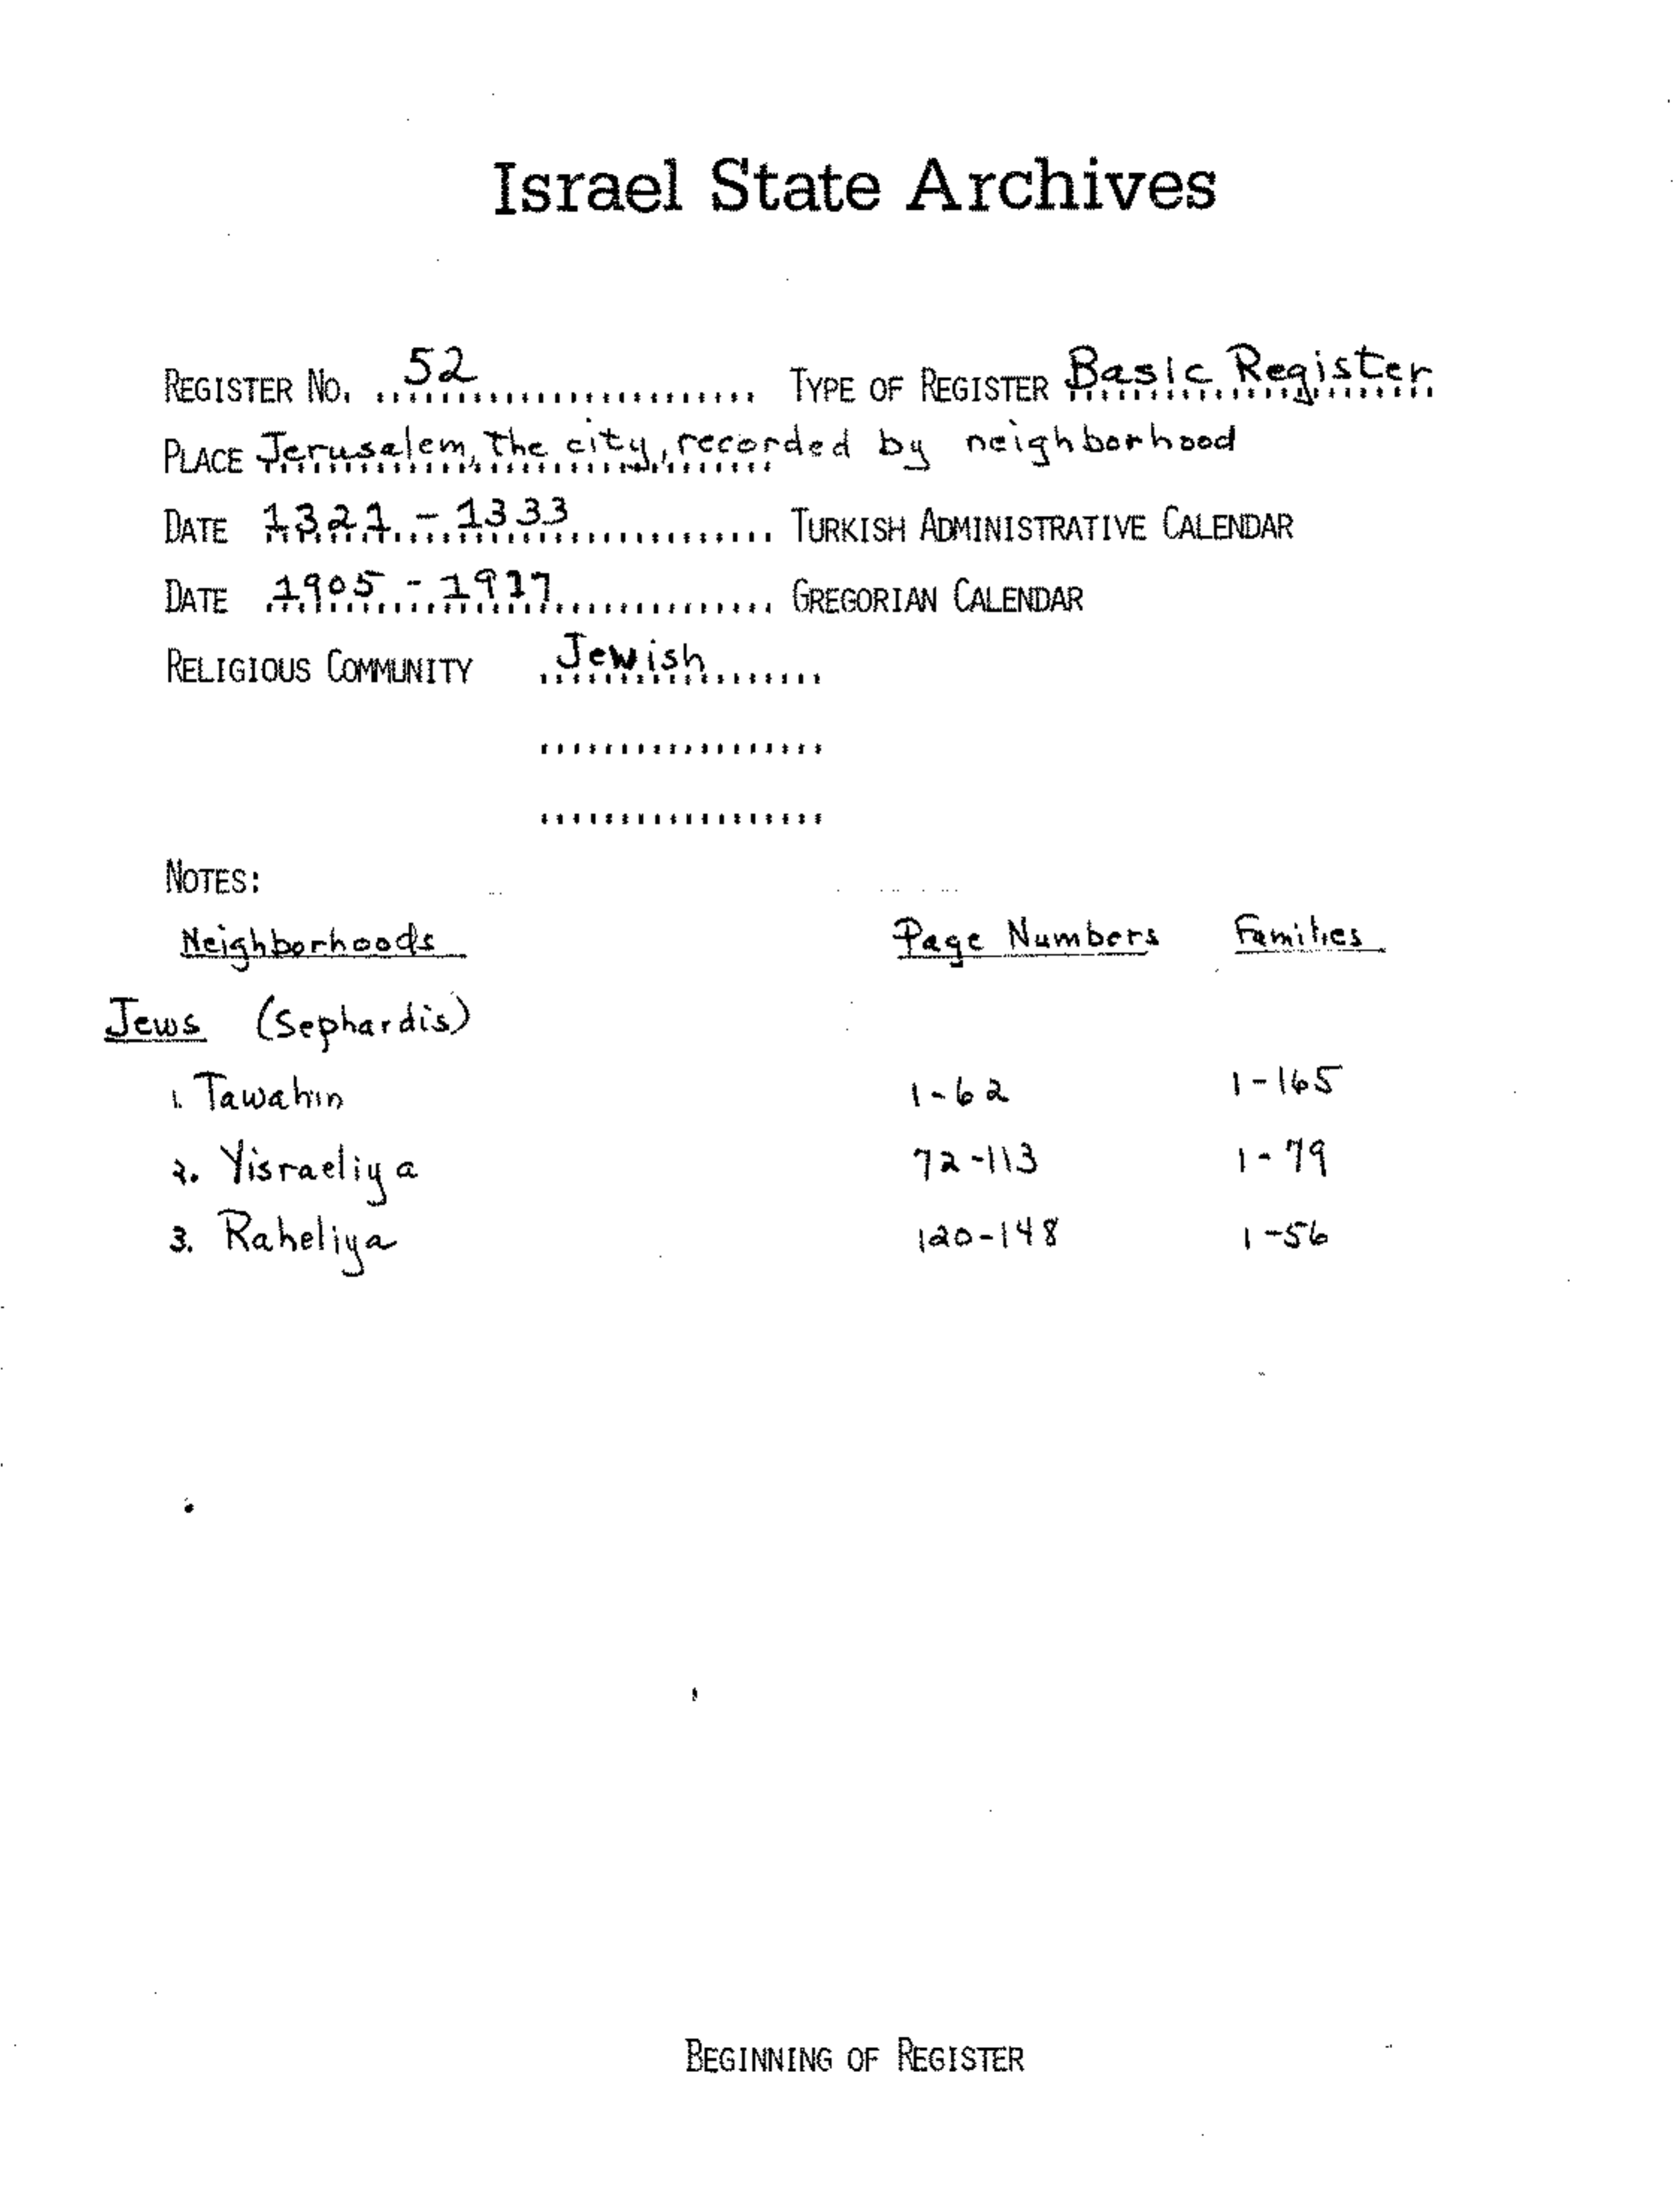 Israel State Archives
REGISTER No. 52 TYPE OF REGISTER Basic Register
PLACE Jerusalem, the city, recorded by neighborhood
DATE 1321 - 1333 TURKISH ADMINISTRATIVE CALENDAR
DATE 1905 - 1917 GREGORIAN CALENDAR
RELIGIOUS COMMUNITY Jewish
NOTES:
Neighborhoods Page Numbers Families
Jews (Sephardis)
1. Tawahin 1-62 1-165
2. Yisraeliya 72-113 1-79
3. Raheliya 120-148 1-56
BEGINNING OF REGISTER